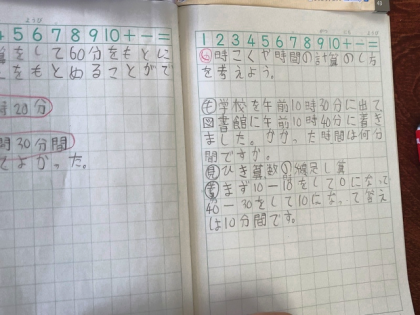 4 5 6 7 8 9 10 + - =
をして60分をもとに
をもとめることがで
時20分
間30分間
てよかった。
1 2 3 4 5 6 7 8 9 10 + - =
時こくや時間の計算のし方
を考えよう。
学校を午前10時30分に出て
図書館に午前10時40分に着き
ました。かかった時間は何分
間ですか。
見 ひき算
まず10-10をして0になって
40-30をして10になって答え
は10分間です。